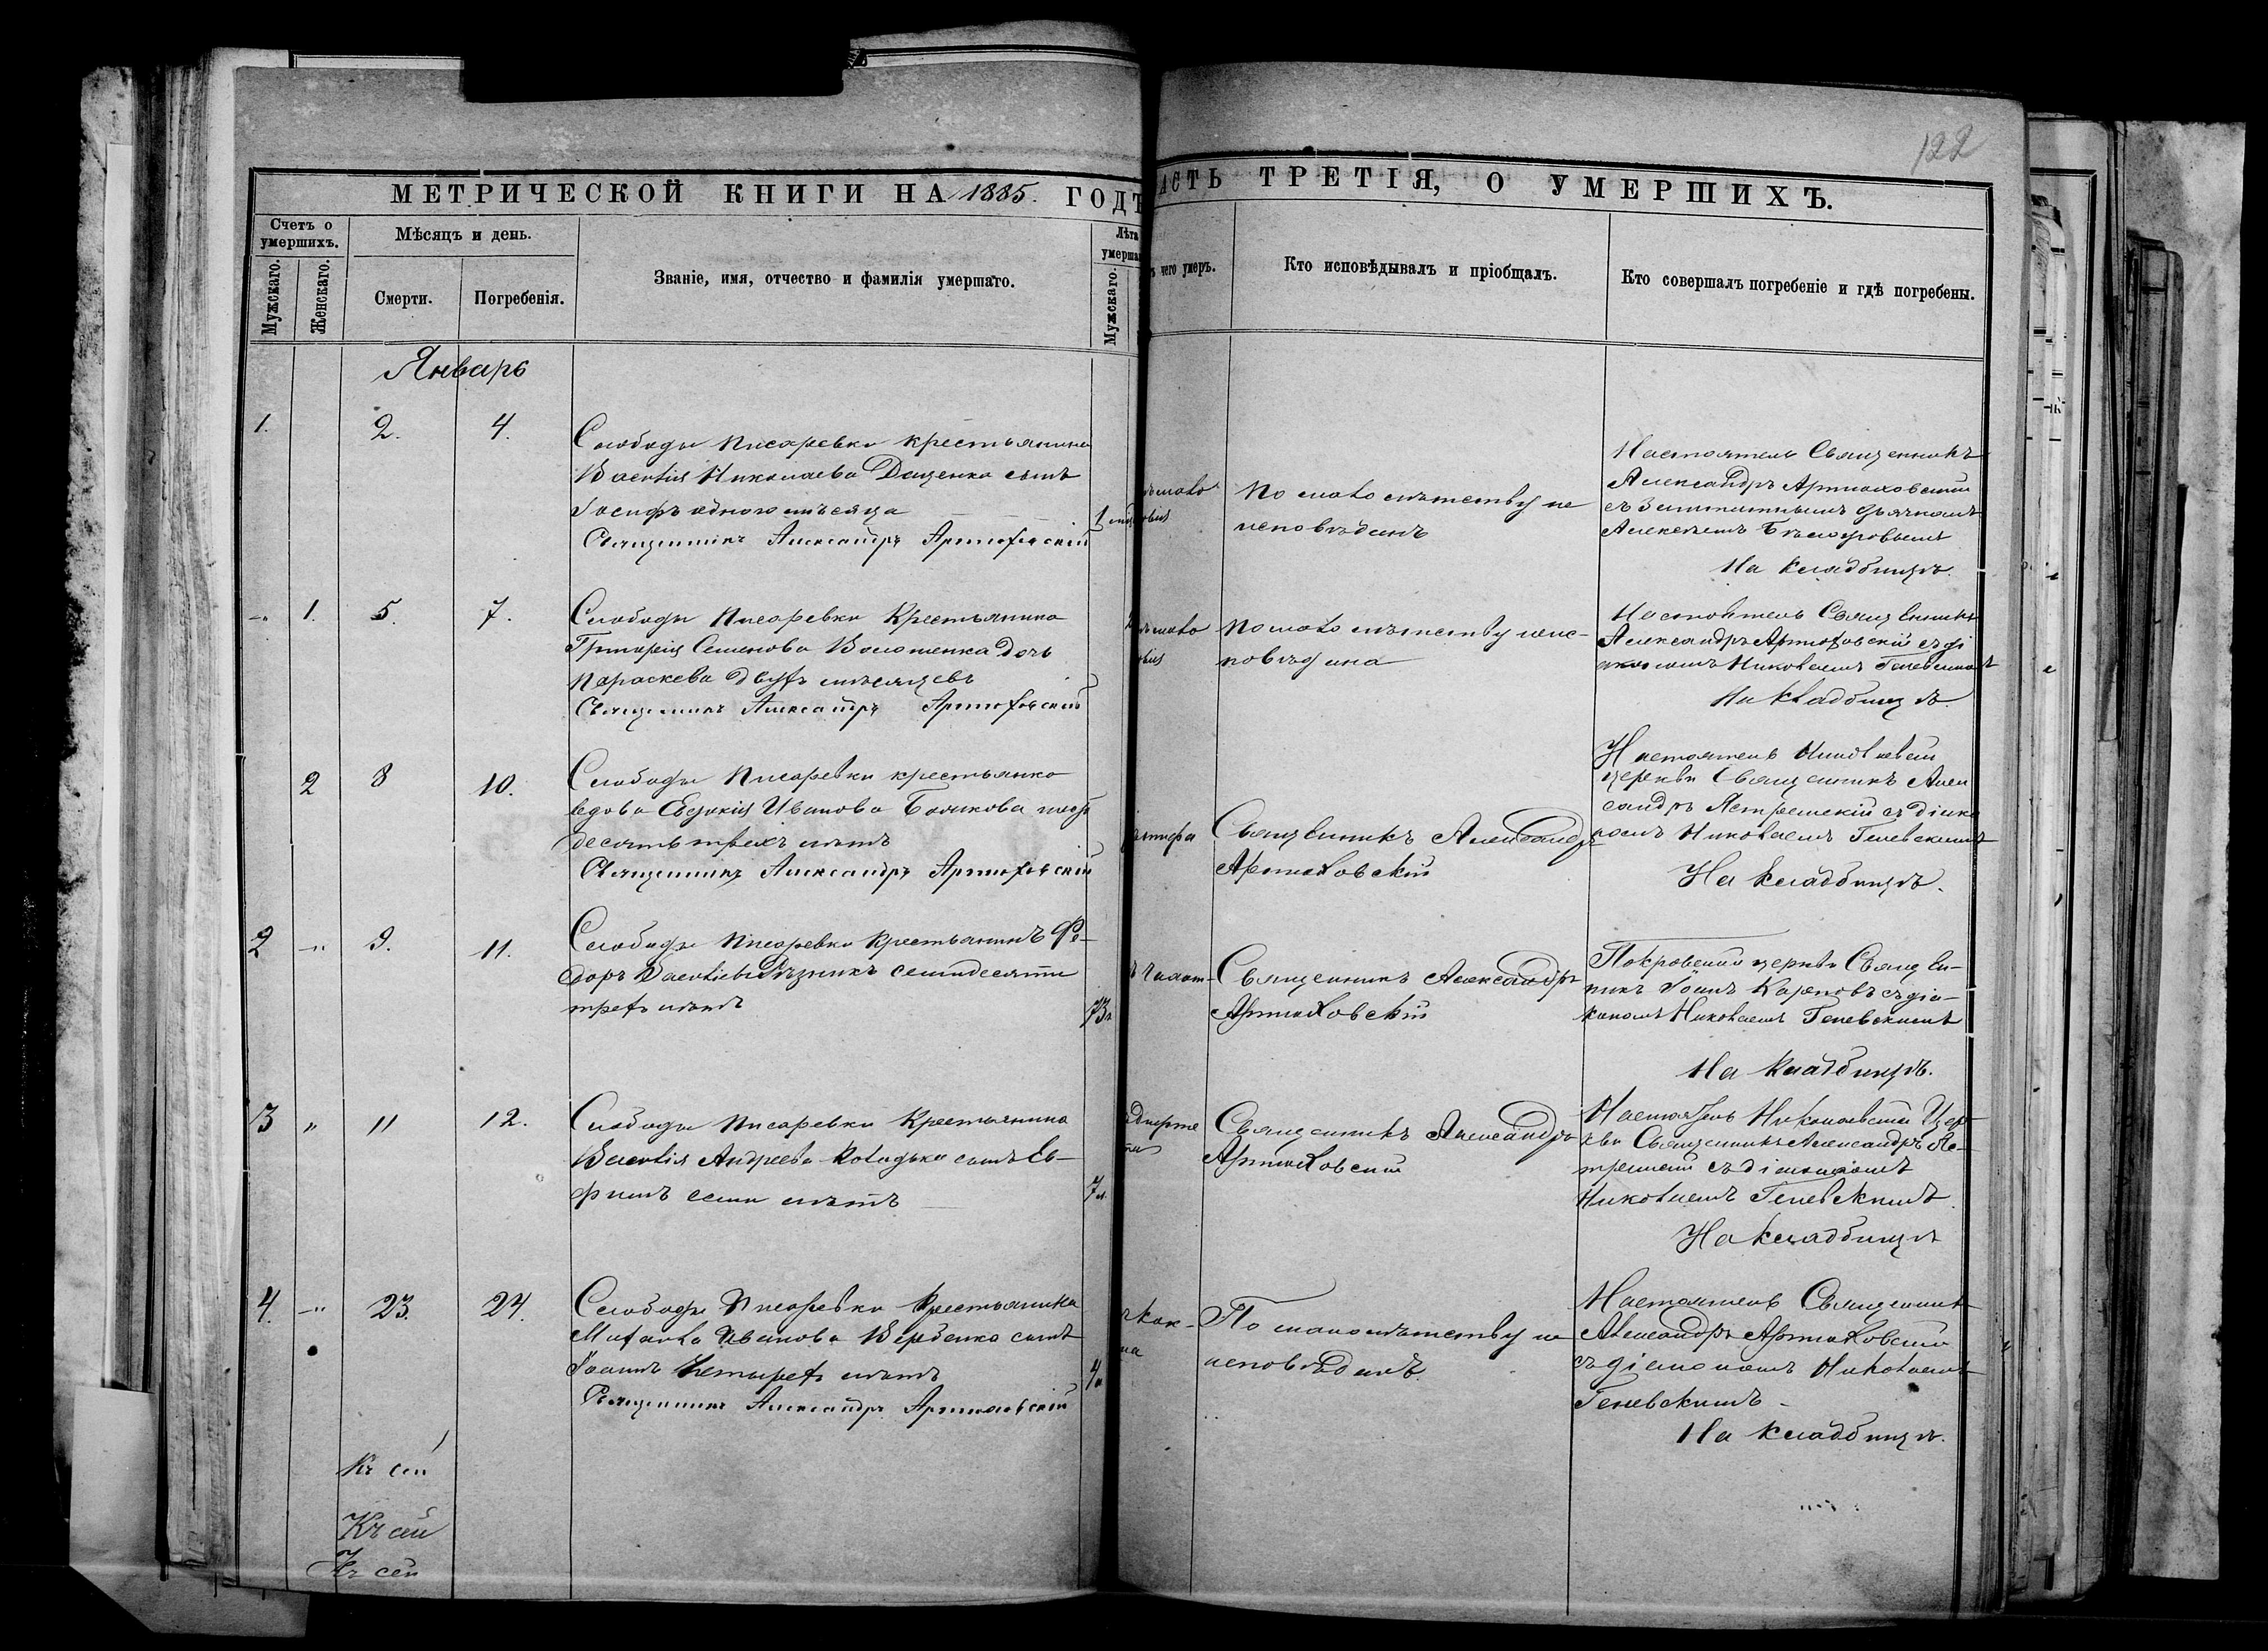 122
МЕТРИЧЕСКОЙ КНИГИ НА 1885. ГОДЪ
Счетъ о умершихъ.
Мѣсяцъ и день.
Званіе, имя, отчество и фамилія умершаго.
Лѣта
умерша
Мужскаго.
Женскаго.
Смерти.
Погребенія.
Мужскаго.
Январь
1. 2. 4.
Слободы Писаревки крестьянина
Василія Николаева Даценка сынъ
Іосифъ одного мѣсяца
Священникъ Александръ Артюховскій
1. 5. 7.
Слободы Писаревки Крестьянина
Григорія Семенова Волошенка дочь
Параскева двухъ мѣсяцевъ
Священникъ Александръ Артюховскій
2 8 10.
Слободы Писаревки крестьянка
вдова Евдокія Иванова
десять трехъ лѣтъ
Священникъ Александръ Артюховскій
2 9. 11.
Слободы Писаревки Крестьянинъ Фе-
доръ Васильевъ семидесяти
трехъ лѣтъ
73
3 11 12.
Слободы Писаревки Крестьянина
Василія Андреева сынъ Еѳ-
фимъ семи лѣтъ
7 л.
4. 23. 24.
Слободы Писаревки Крестьянина
Михаила Иванова Вербенка сынъ
Іоаннъ Четырехъ лѣтъ
4
Священникъ Александръ Артюховскій
Къ сей
Къ сей
Къ сей
АСТЬ ТРЕТІЯ, О УМЕРШИХЪ.
чего умеръ.
Кто исповѣдывалъ и пріобщалъ.
Кто совершалъ погребеніе и гдѣ погребены.
По малолѣтству не
исповѣданъ
Настоятель Священникъ
Александръ Артюховскій
съ Заштатнымъ дьячкомъ
Алексѣемъ
На кладбищѣ.
По малолѣтству неис-
повѣдана
Настоятель Священникъ
Александръ Артюховскій съ ді
акономъ Николаемъ Геневскимъ
На кладбищѣ.
Священникъ Александръ
Артюховскій
Настоятель Николаевской
церкви Священникъ Алек
сандръ Ястремскій съ діако
номъ Николаемъ Геневскимъ
На кладбищѣ.
Священникъ Александръ
Артюховскій
Покровской церкви Священ-
никъ Іоаннъ Карповъ съ діа-
кономъ Николаемъ Геневскимъ
На кладбищѣ.
Священникъ Александръ
Артюховскій
Настоятель Николаевской Цер-
кви Священникъ Александръ Яс-
тремскій съ діакономъ
Николаемъ Геневскимъ.
На кладбищѣ
По малолѣтству не
исповѣданъ.
Настоятель Священникъ
Александръ Артюховскій
съ діакономъ Николаемъ
Геневскимъ
На кладбищѣ.